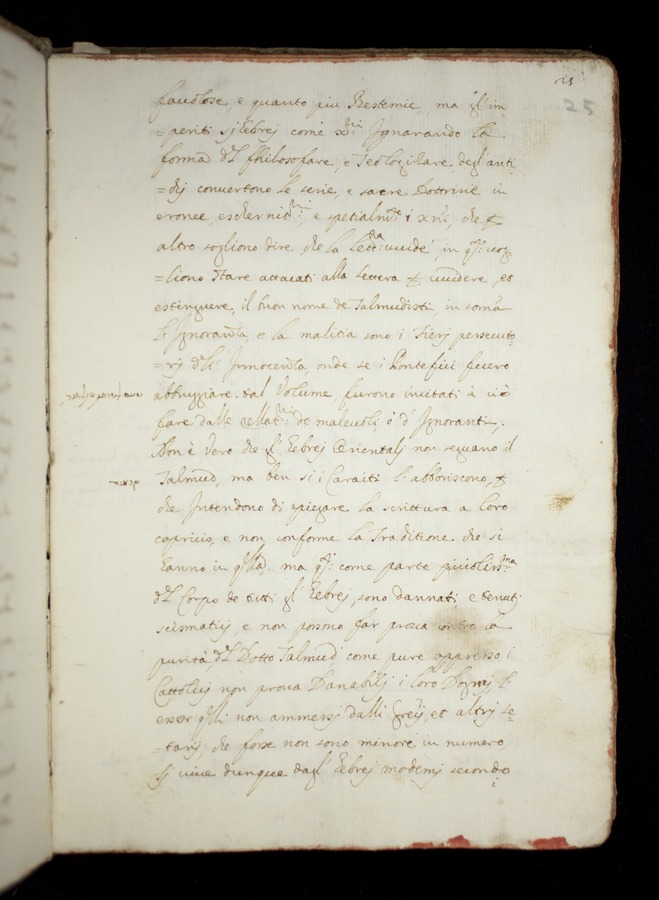 25
25
favolose, e quanto piu Bestemie, ma gl' im-
=periti sj Ebrej come xp:ni Ignorando la
forma del fhilosofare, e Teologizare degl' anti-
=chj convertono le serie, e sacre Dottrine in
eronee, e spetialm:te i xni, che p
altro sogliono dire che la Lett:ra uccide, in q.ti: uog-
=liono Stare attacati alla lettera p uccidere, et
estinguere, il buon nome de Talmudisti, in soma
l'Ignoranza, e la malitia sono i Fierj persecuto-
=rj dell' Innocenza, onde se i Pontefici fecero
abbruggiare tal Volume, furono incitati à ciò
fare dalle rellat:ni de malevoli ò d' Ignoranti.
Non è Vero che gl' Eebrej Orientalj non seguano il
Talmud, ma ben si i Caraiti l'abboriscono, p
che Intendono di spiegare la scrittura a loro
capricio, e non conforme la Traditione che si
hanno in q.lla, ma q.ti: come parte picciolis:ma
del Corpo de tutti gl' Eebrej, sono dannati, e tenuti
scismaticj, e non possono far prova contro la
purità del Dotto Talmud, come pure appresso i
Cattolicj non prova Danabilj i loro Dogmj l'
esser q.lli non ammessj dalli Grecj, et altrj se-
=tarij, che forse non sono minore in numero
Sj vive dunque dagl' Eebrej modernj secondo
i